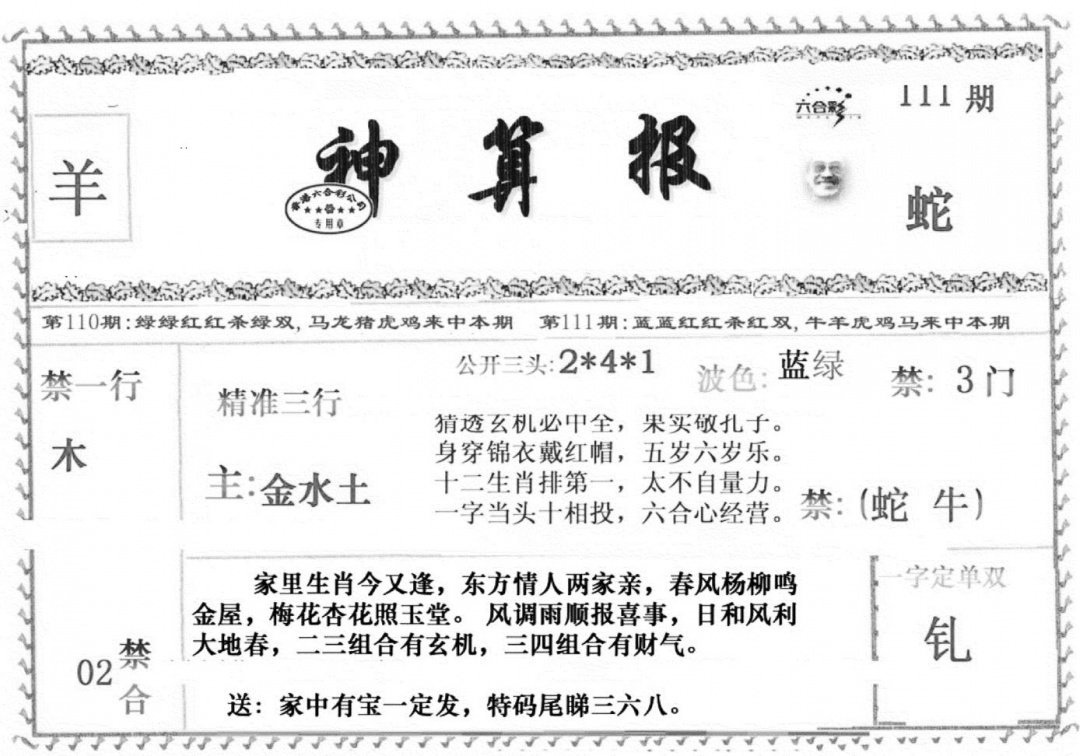 111 期
六合彩
羊
神算报
香港六合彩公司
专用章
蛇
第110期:绿绿红红杀绿双,马龙猪虎鸡来中本期 第111期:蓝蓝红红杀红双,牛羊虎鸡马来中本期
公开三头:2*4*1
波色:蓝绿
禁:3门
禁一行
木
精准三行
主:金水土
猜透玄机必中全，果实敬孔子。
身穿锦衣戴红帽，五岁六岁乐。
十二生肖排第一，太不自量力。
一字当头十相投，六合心经营。
禁:(蛇 牛)
家里生肖今又逢，东方情人两家亲，春风杨柳鸣
金屋，梅花杏花照玉堂。风调雨顺报喜事，日和风利
大地春，二三组合有玄机，三四组合有财气。
送：家中有宝一定发，特码尾睇三六八。
02
禁
合
一字定单双
钆